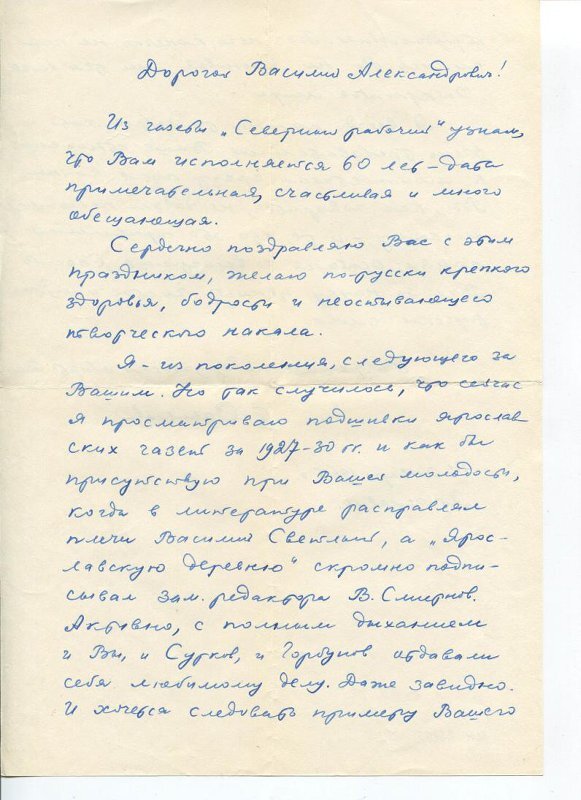 Дорогой Василий Александрович!
Из газеты „Северный рабочий“ узнал,
что Вам исполняется 60 лет – дата
примечательная, счастливая и много
обещающая.
Сердечно поздравляю Вас с этим
праздником, желаю по-русски крепкого
здоровья, бодрости и неостывающего
творческого накала.
Я – из поколения, следующего за
Вашим. Но так случилось, что сейчас
я просматриваю подшивки ярослав-
ских газет за 1927–30 гг. и как бы
присутствую при Вашей молодости,
когда в литературе расправлял
плечи Василий Светлый, а „Ярос-
лавскую деревню“ скромно подпи-
сывал зам. редактора В. Смирнов.
Активно, с полным дыханием
и Вы, и Сурков, и Горбунов отдавали
себя любимому делу. Даже завидно.
И хочется следовать примеру Вашего